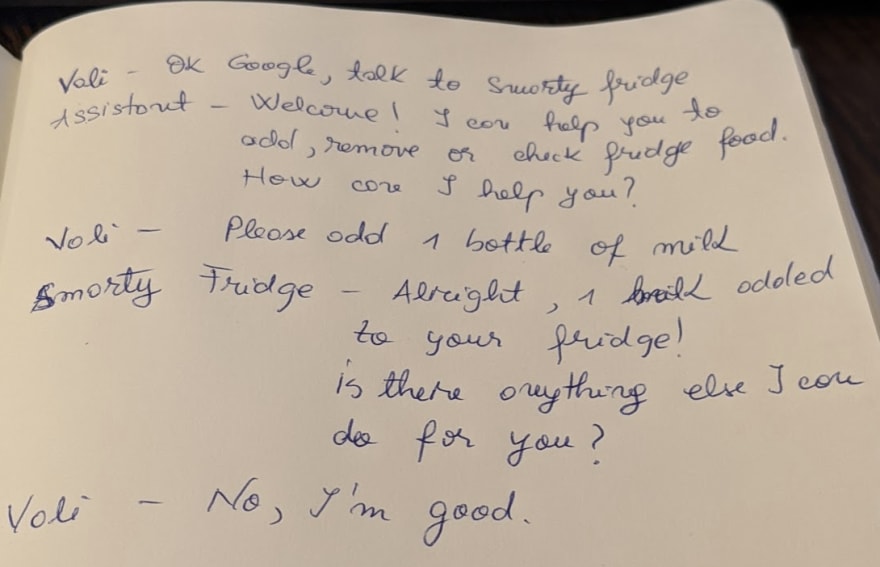 Vali - OK Google, talk to Smarty fridge
Assistant - Welcome! I can help you to
add, remove or check fridge food.
How can I help you?
Vali - Please add 1 bottle of milk
Smarty Fridge - Alright, 1 milk added
to your fridge!
is there anything else I can
do for you?
Vali - No, I'm good.